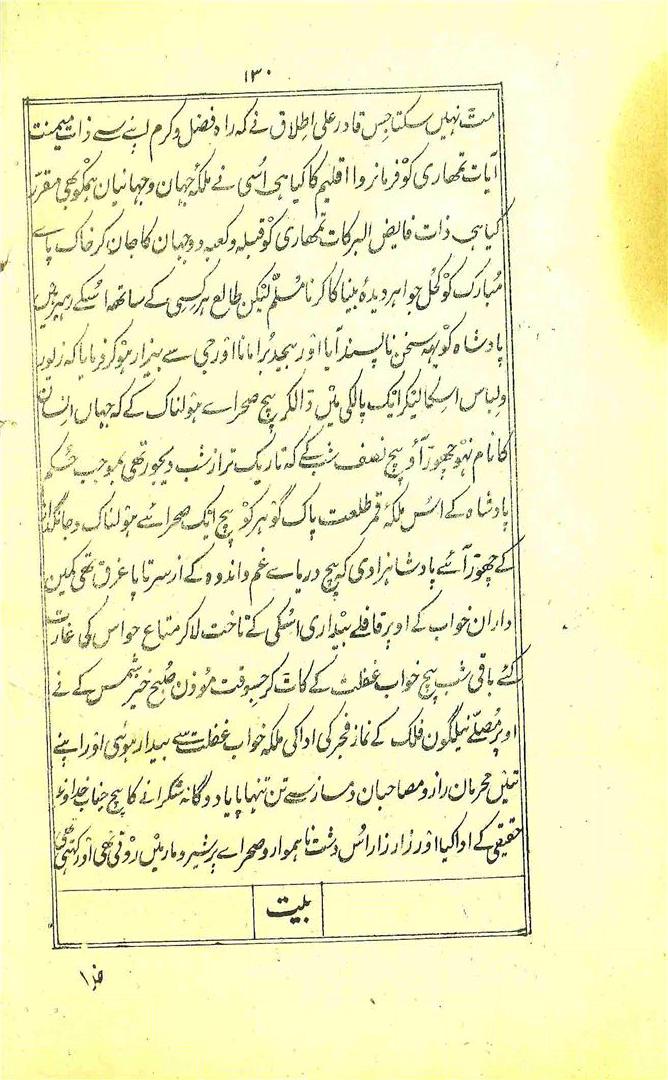 ۱۳۰
مٹ نہیں سکتا جس قادر علی اطلاق نے کہ راہ فضل و کرم اپنے سے ذات میمنت
آیات تمھاری کو فرمانروا اقلیم کا کیا ہی اُسی نے ملکۂ جہان و جہانیان ہمکو بھی مقرر
کیا ہی ذات فایض البرکات تمھاری کو قبلہ و کعبہ دو جہان کا جان کر خاک پاے
مُبارک کو کحل جواہر دیدۂ بینا کا کرنا مُسلّم لیکن طالع ہر کسی کے ساتھہ اُسکے رہبر ہین
پادشاہ کو یہہ سخن ناپسند آیا اور بیجد بُرا مانا اور جی سے بیزار ہو کر فرمایا کہ زیور
و لباس اسکا لیکر ایک پالکی مین ڈالکر بیچ صحراے ہولناک کے کہ جہاں انسان
کا نام نہو چھوڑ آؤ بیچ نصف شب کے کہ تاریک تر از شب دیجور تھی بموجب حُکم
پادشاہ کے اُس ملکۂ قمر طلعت پاک گوہر کو بیچ ایک صحراے ہولناک و جانگداز
کے چھوڑ آئے پادشاہزادی کہ بیچ دریاے غم و اندوہ کے از سر تا پا غرق تھی کمین
داران خواب کے اوپر قافلے بیداری اُسکی کے تاخت لا کر متاع حواس کی غارت
کئے باقی شب بیچ خواب غفلت کے کاٹ کر جسوقت موذن صبح خیز شمس کے نے
اوپر مُصلّے نیلگون فلک کے نماز فجر کی ادا کی ملکہ خواب غفلت سے بیدار ہوئی اور اپنے
تئیں محرمان راز و مصاحبان دمساز سے تن تنہا پایا دوگانہ شکرانے کا بیچ جناب خداوند
حقیقی کے ادا کیا اور زار زار اُس دشت ناہموار و صحراے پر شیر و مار مین روتی تھی اور کہتی تھی
بیت